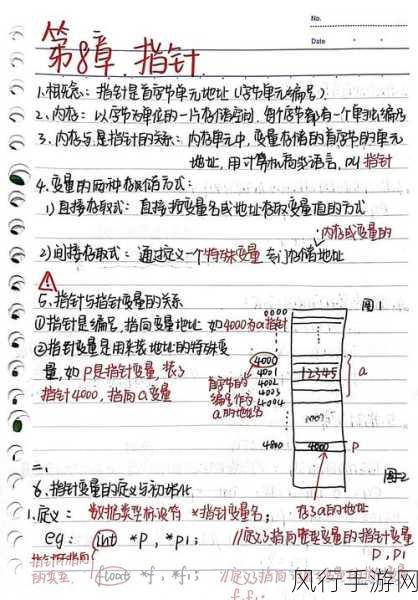 No.
Date
第8章 指针
1.相关概念：指针是首字节单元地址(字节单元编号)。
2.内存：以字节为单位的一片存储空间，每个字节都有一个单独编号
3.内存与是指针的关系：内存单元中，变量存储的首字节的单元
地址，用计算机语言，叫指针
4.变量的两种存储方式：
1)直接存取式：直接按变量名或地址存取变量值的方式
内存或变量的
2)间接存取式：通过定义一个特殊变量专门存储地址
5.指针与指针变量的关系
图1
①指针是编号，指向变量地址 如4000为a指针
②指针变量是用来装地址的特殊变
量，如P是指针变量，装了
指针4000，指向a变量
0000
4000
4001
4002
4003
4004
首字节的
编号作为
a的地址名
12345
a
4800
4000
P
存了a的地址
图2
二、
6.指针变量的定义与初始化
1.定义： 数据类型标识符 *指针变量名；
eg: int *P, *P1; //定义了指向整型变量的指针变量
P, P1
指针所指向
的类型
float *f, *f1; //定义了指向
f, f1
风行手游网